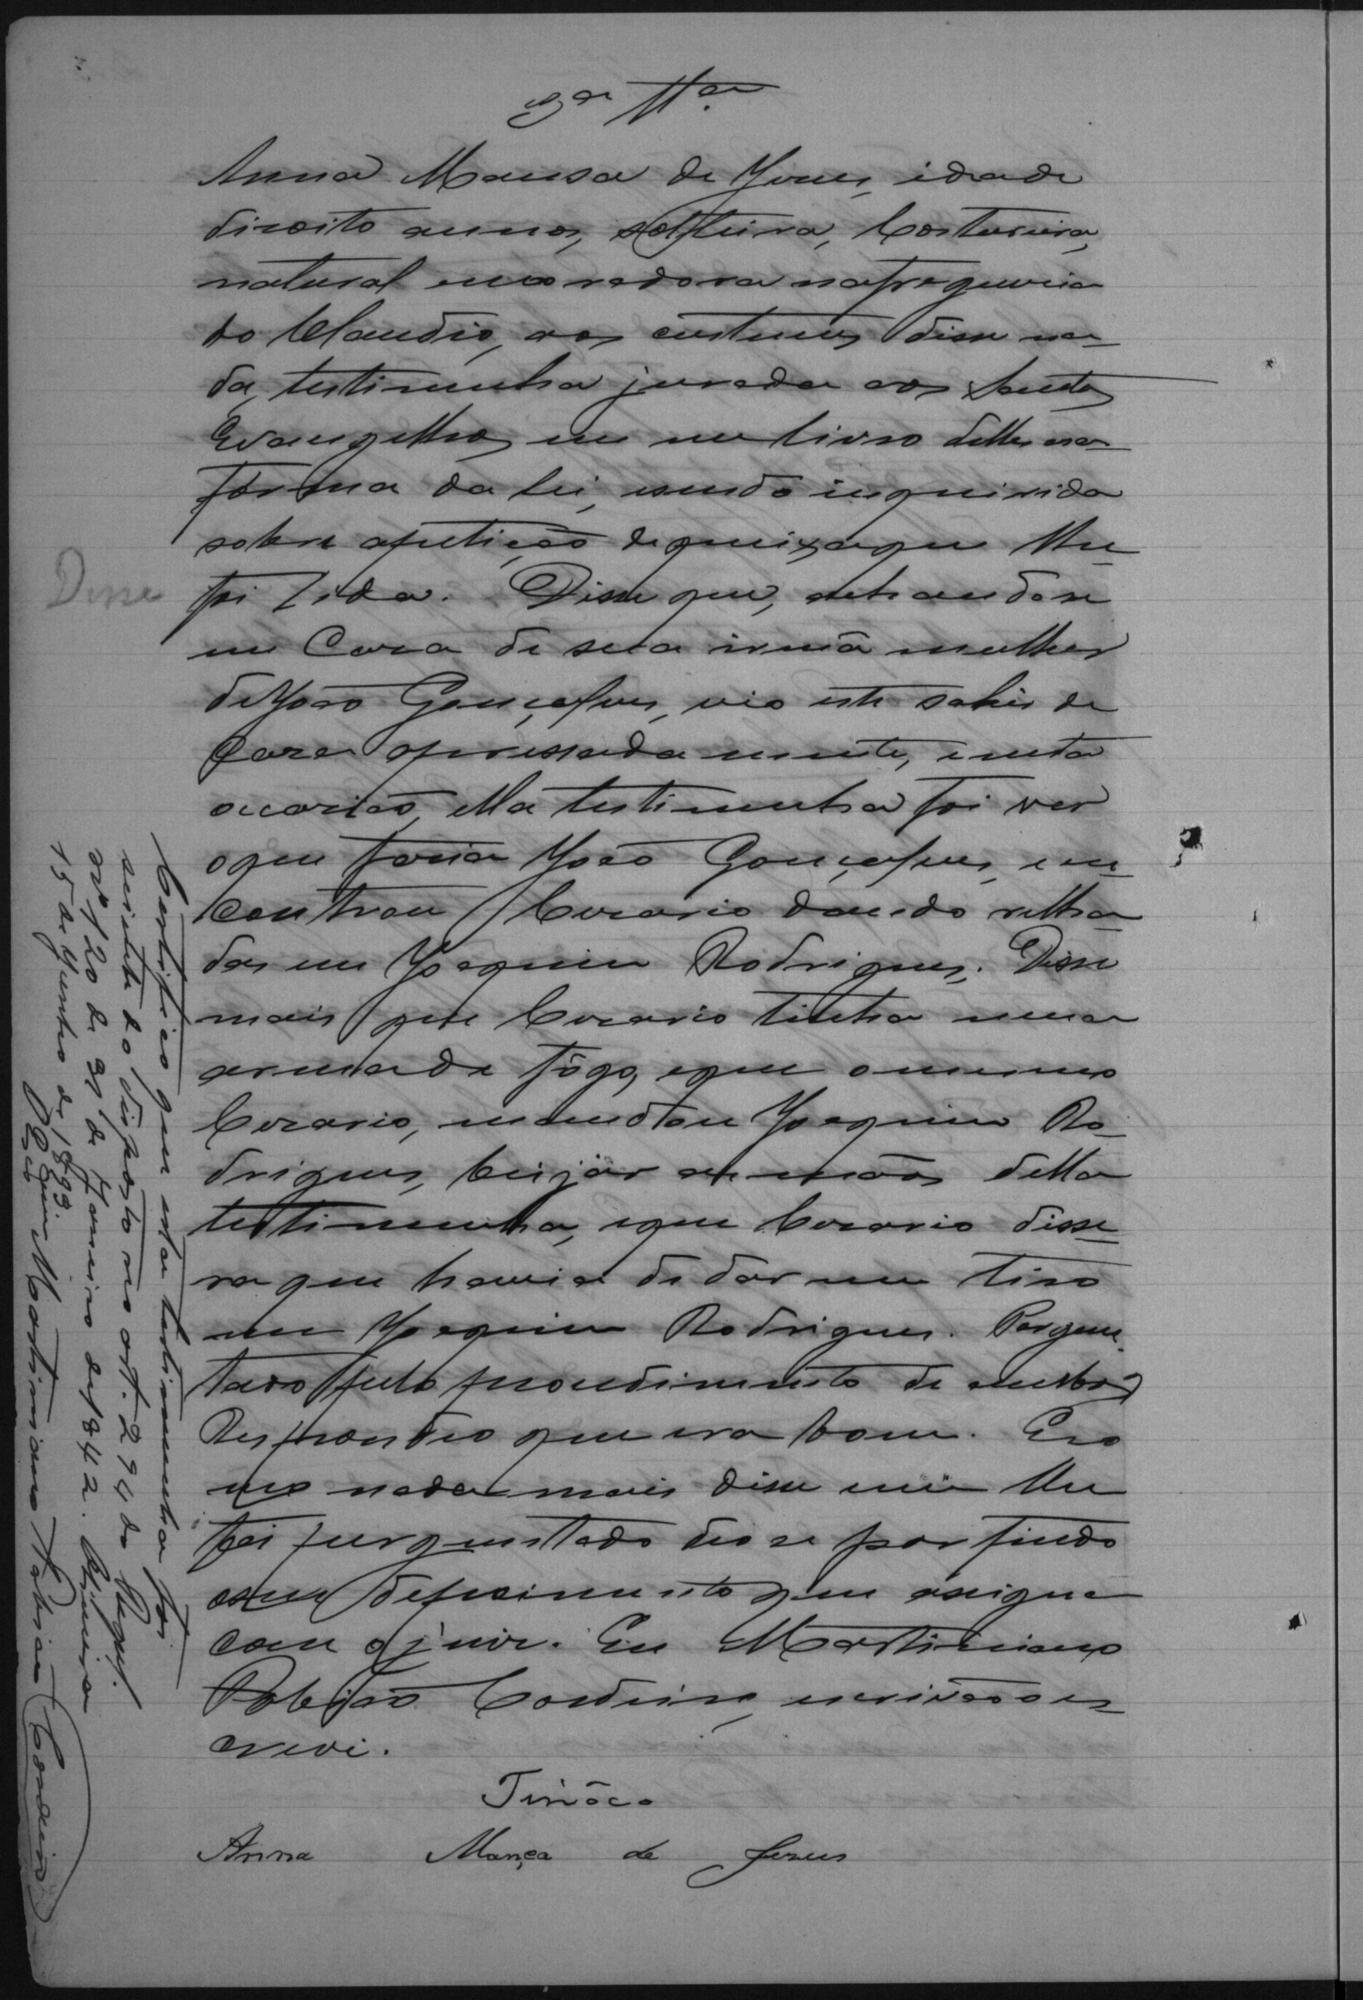 3ª Ttª
Anna Mansa de Jesus, idade
dizoito annos, solteira, Costureira,
natural e moradora na freguezia
do Claudio, aos custumes disse na-
da, testimunha jurada aos Santos
Evangelhos em um livro delles na
forma da lei, e sendo inquirida
sobre a petição de queixa que lhe
foi lida. Disse que, achando se
em Casa de sua irmã mulher
de João Gonçalves, vio este sahir de
Casa apressadamente, e nesta
occasião, ella testimunha foi ver
o que fasia João Gonçalves, e en-
controu Cezario dando relha-
das em Joaquim Rodrigues. Disse
mais que Cezario tinha uma
arma de fôgo, e que o mesmo
Cezario, mandou Joaquim Ro-
drigues, beijar as mãos della
testimunha, e que Cezario disse-
ra que havia de dar um tiro
em Joaquim Rodrigues. Pergun-
tado pelo procedimento de ambos
Respondeo que era bom. E co
mo nada mais disse nem lhe
foi perguntado deo se por findo
este depoimento que assigna
com o juiz. Eu Martiniano
Cordeiro, escrivão o es-
crevi.
Tinôco
Anna Mança de Jesus
Disse
Certifico que esta testimunha foi
sciente do disposto no art. 294 do Regul.
nº 120 de 31 de Janeiro de 1842.
15 de Junho de 1893
O Escrivão Martiniano Cordeiro